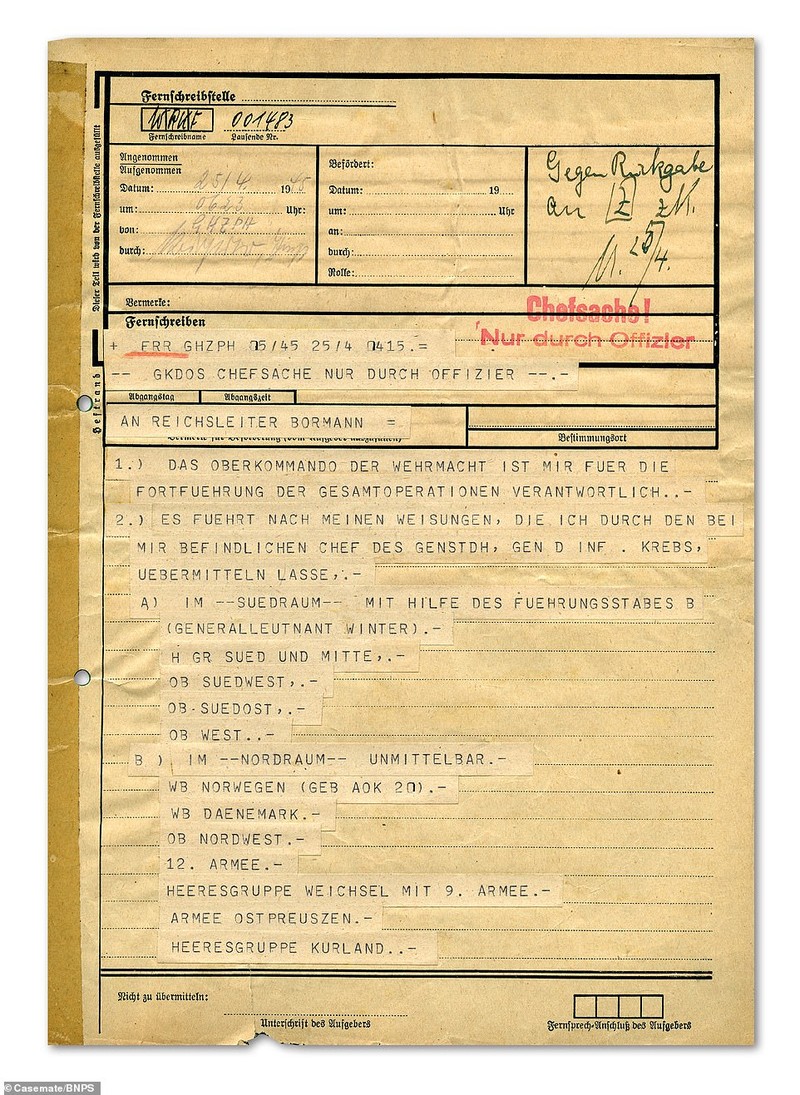 Fernschreibstelle
001483
Fernschreibname Laufende Nr.
Angenommen
Aufgenommen
Datum: 25/4. 19 45
um: 0623 Uhr:
von: GHZPH
durch:
Befördert:
Datum: 19
um: Uhr
an:
durch:
Rolle:
Gegen Rückgabe
an Z z.K.
25/4.
Dieser Teil wird von der Fernschreibstelle ausgefüllt
Vermerke:
Chefsache!
Nur durch Offizier
Fernschreiben
+ FRR GHZPH 05/45 25/4 0415.=
-- GKDOS CHEFSACHE NUR DURCH OFFIZIER --.-
Abgangstag Abgangszeit
Heftrand
AN REICHSLEITER BORMANN =
Vermerke für Beförderung (vom Aufgeber auszufüllen)
Bestimmungsort
1.) DAS OBERKOMMANDO DER WEHRMACHT IST MIR FUER DIE
FORTFUEHRUNG DER GESAMTOPERATIONEN VERANTWORTLICH..-
2.) ES FUEHRT NACH MEINEN WEISUNGEN, DIE ICH DURCH DEN BEI
MIR BEFINDLICHEN CHEF DES GENSTDH, GEN D INF . KREBS,
UEBERMITTELN LASSE,.-
A) IM --SUEDRAUM-- MIT HILFE DES FUEHRUNGSSTABES B
(GENERALLEUTNANT WINTER).-
H GR SUED UND MITTE,.-
OB SUEDWEST,.-
OB SUEDOST,.-
OB WEST..-
B ) IM --NORDRAUM-- UNMITTELBAR.-
WB NORWEGEN (GEB AOK 20).-
WB DAENEMARK.-
OB NORDWEST.-
12. ARMEE.-
HEERESGRUPPE WEICHSEL MIT 9. ARMEE.-
ARMEE OSTPREUSZEN.-
HEERESGRUPPE KURLAND..-
Nicht zu übermitteln:
Unterschrift des Aufgebers
Fernsprech-Anschluß des Aufgebers
© Casemate/BNPS